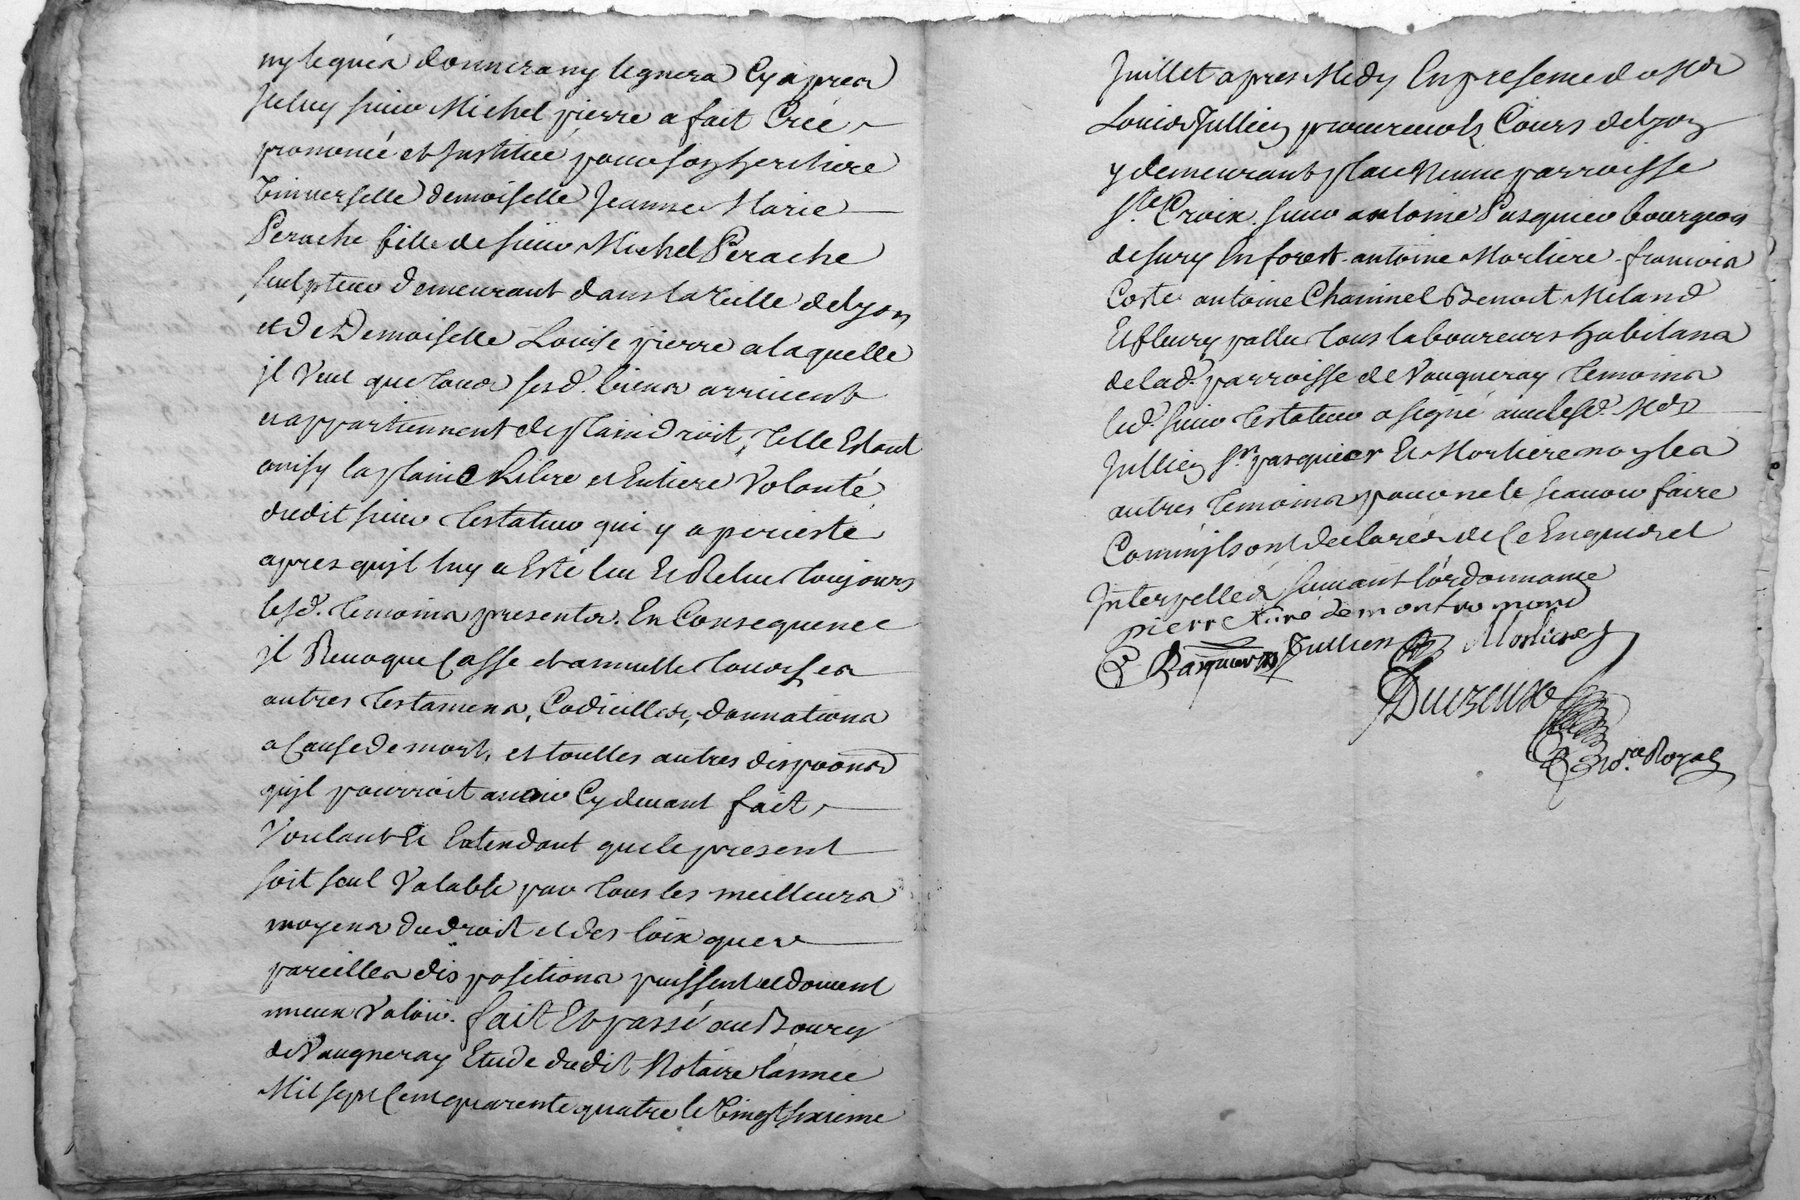 ny legué donnera ny legnera Cy apres
Iceluy sieur Michel pierre a fait Créé
prononcé et Institué pour son heritiere
Universelle demoiselle Jeanne Marie
Perache fille de sieur Michel Perache
sculpteur demeurant dans la Ville de Lyon
et de Demoiselle Louise pierre a laquelle
jl Veut que tous sesd. biens arrivent
et appartiennent de plain droit, telle Estant
ainsy la plaine Libre et Entiere Volonté
dudit sieur testateur qui y a percisté
apres qu'jl luy a Esté lue Et Relue toujours
lesd. temoins presents. En Consequence
jl Revoque Casse et annulle tous ses
autres testamens, Codicilles, donnations
a Cause de mort, et touttes autres dispoons
qu'jl pourroit avoir Cy devant fait
Voulant Et Entendant que le present
soit seul Valable par tous les meilleurs
moyens du droit et des loix que
pareilles dispositions puissent et doivent
mieux Valoir. fait Et passé au Bourg
de Vaugneray Etude dudit Notaire l'annee
Mil sept Cent quarente quatre le Vingt sixieme
Juillet apres Midy En presence de Me
Louis Jullien procureur ez Cours de Lyon
y demeurant place Neuve parroisse
Ste Croix sieur antoine Pasquier bourgeois
de sury En forest antoine Morliere francois
Coste antoine Chaminel Benoit Meland
Et fleury pallu tous laboureurs habitans
de lad. parroisse de Vaugneray temoins
led. sieur testateur a signé avec lesd. Me
Jullien sr. pasquier Et Morliere non les
autres temoins pour ne le scavoir faire
Comm'jls ont declarés de Ce Enquis et
Interpellés suivant l'ordonnance
pierre sire de montromond
Pasquier Jullien Morliere
Duvreux
Nore. Royal